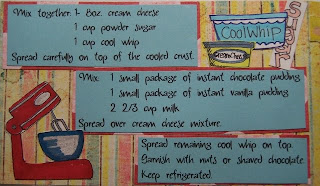 Mix together 1- 8oz. cream cheese
1 cup powder sugar
1 cup cool whip
Spread carefully on top of the cooled crust.
CoolWhip
Cream Cheese
Mix 1 small package of instant chocolate pudding
1 small package of instant vanilla pudding
2 2/3 cup milk
Spread over cream cheese mixture.
Spread remaining cool whip on top.
Garnish with nuts or shaved chocolate.
Keep refrigerated.